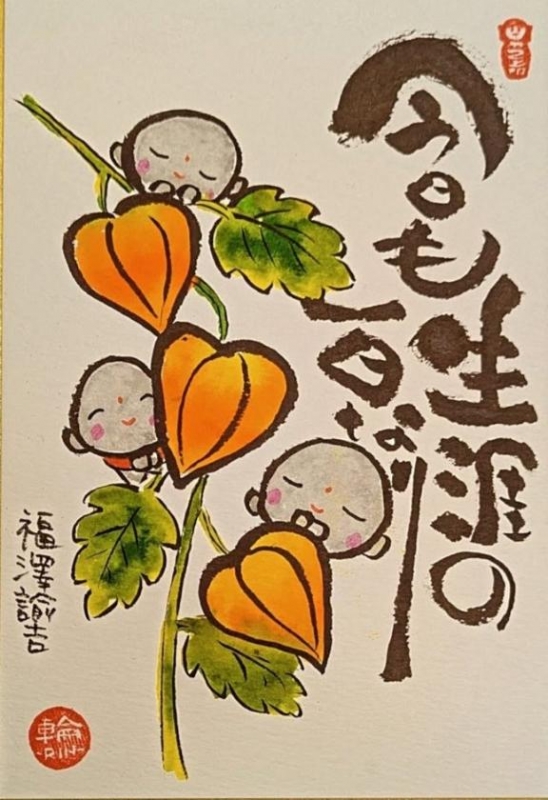 今日も
生涯の
一日なり
福澤諭吉
輪
RIN